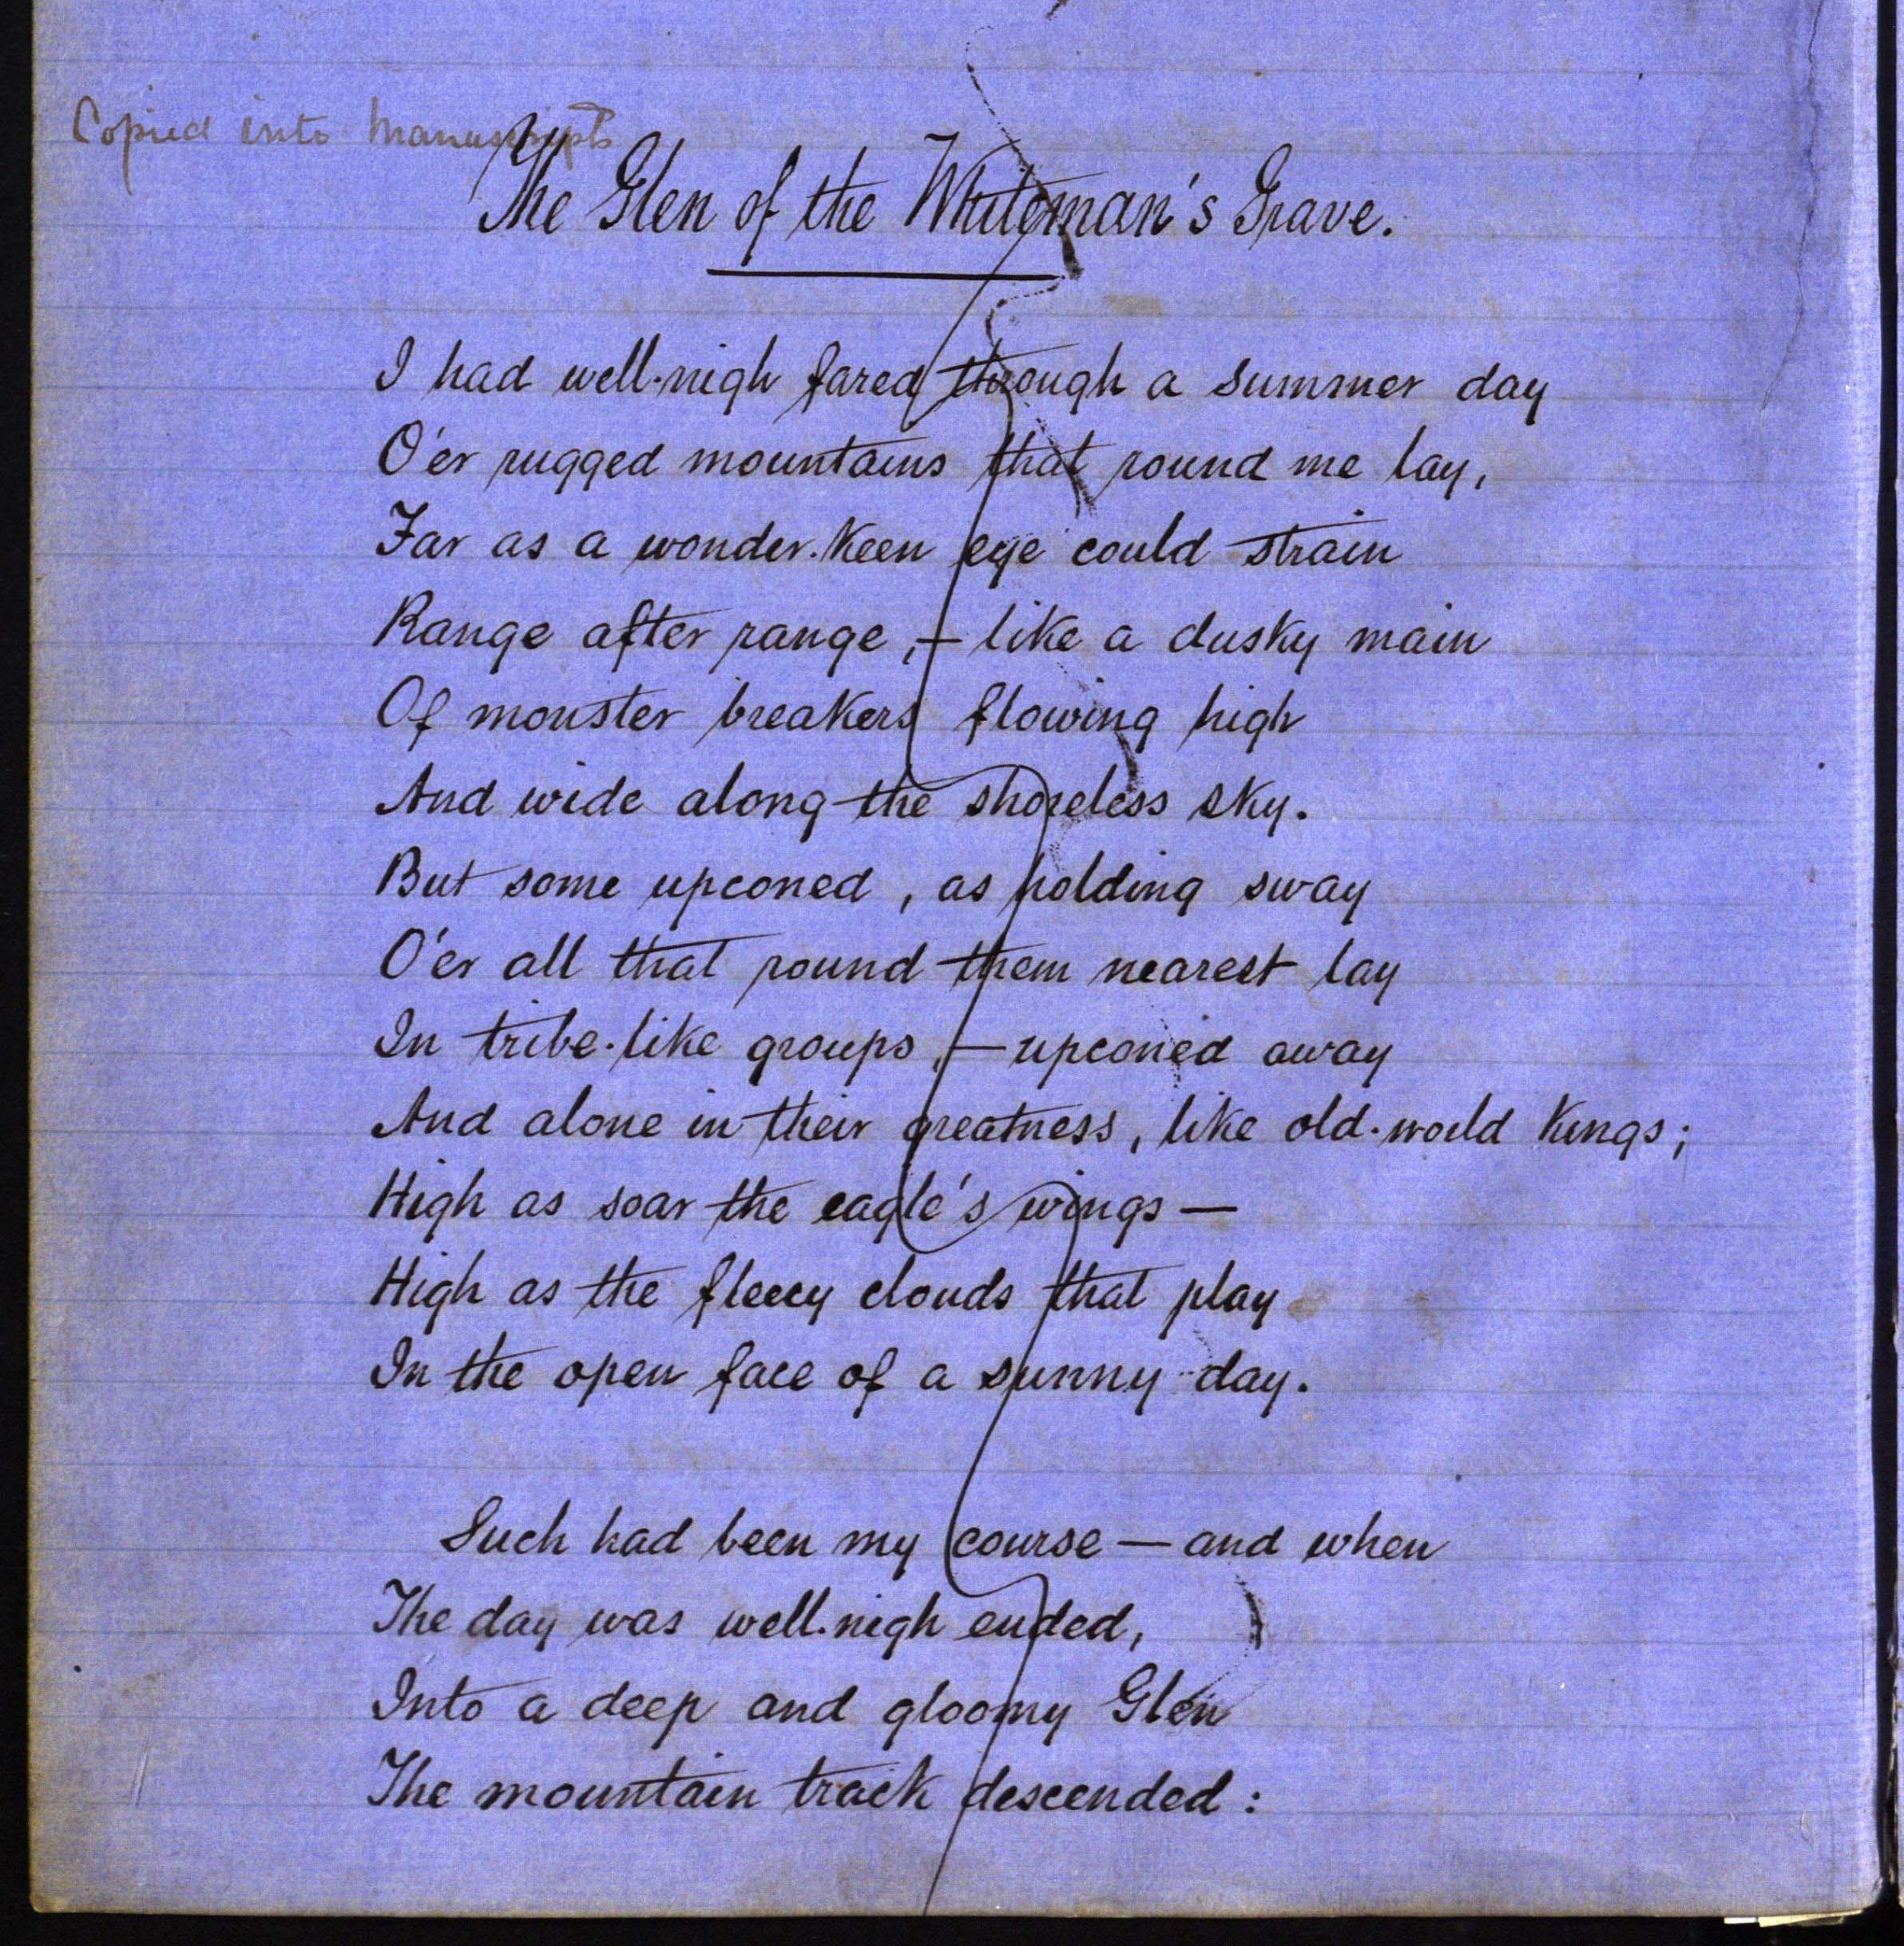 Copied into Manuscripts
The Glen of the Whiteman's Grave.
I had well-nigh fared through a summer day
O'er rugged mountains that round me lay,
Far as a wonder-keen eye could strain
Range after range, — like a dusky main
Of monster breakers flowing high
And wide along the shoreless sky.
But some upconed, as holding sway
O'er all that round them nearest lay
In tribe-like groups, — upconed away
And alone in their greatness, like old-world Kings;
High as soar the eagle's wings —
High as the fleecy clouds that play
In the open face of a sunny day.
Such had been my course — and when
The day was well-nigh ended,
Into a deep and gloomy Glen
The mountain track descended: